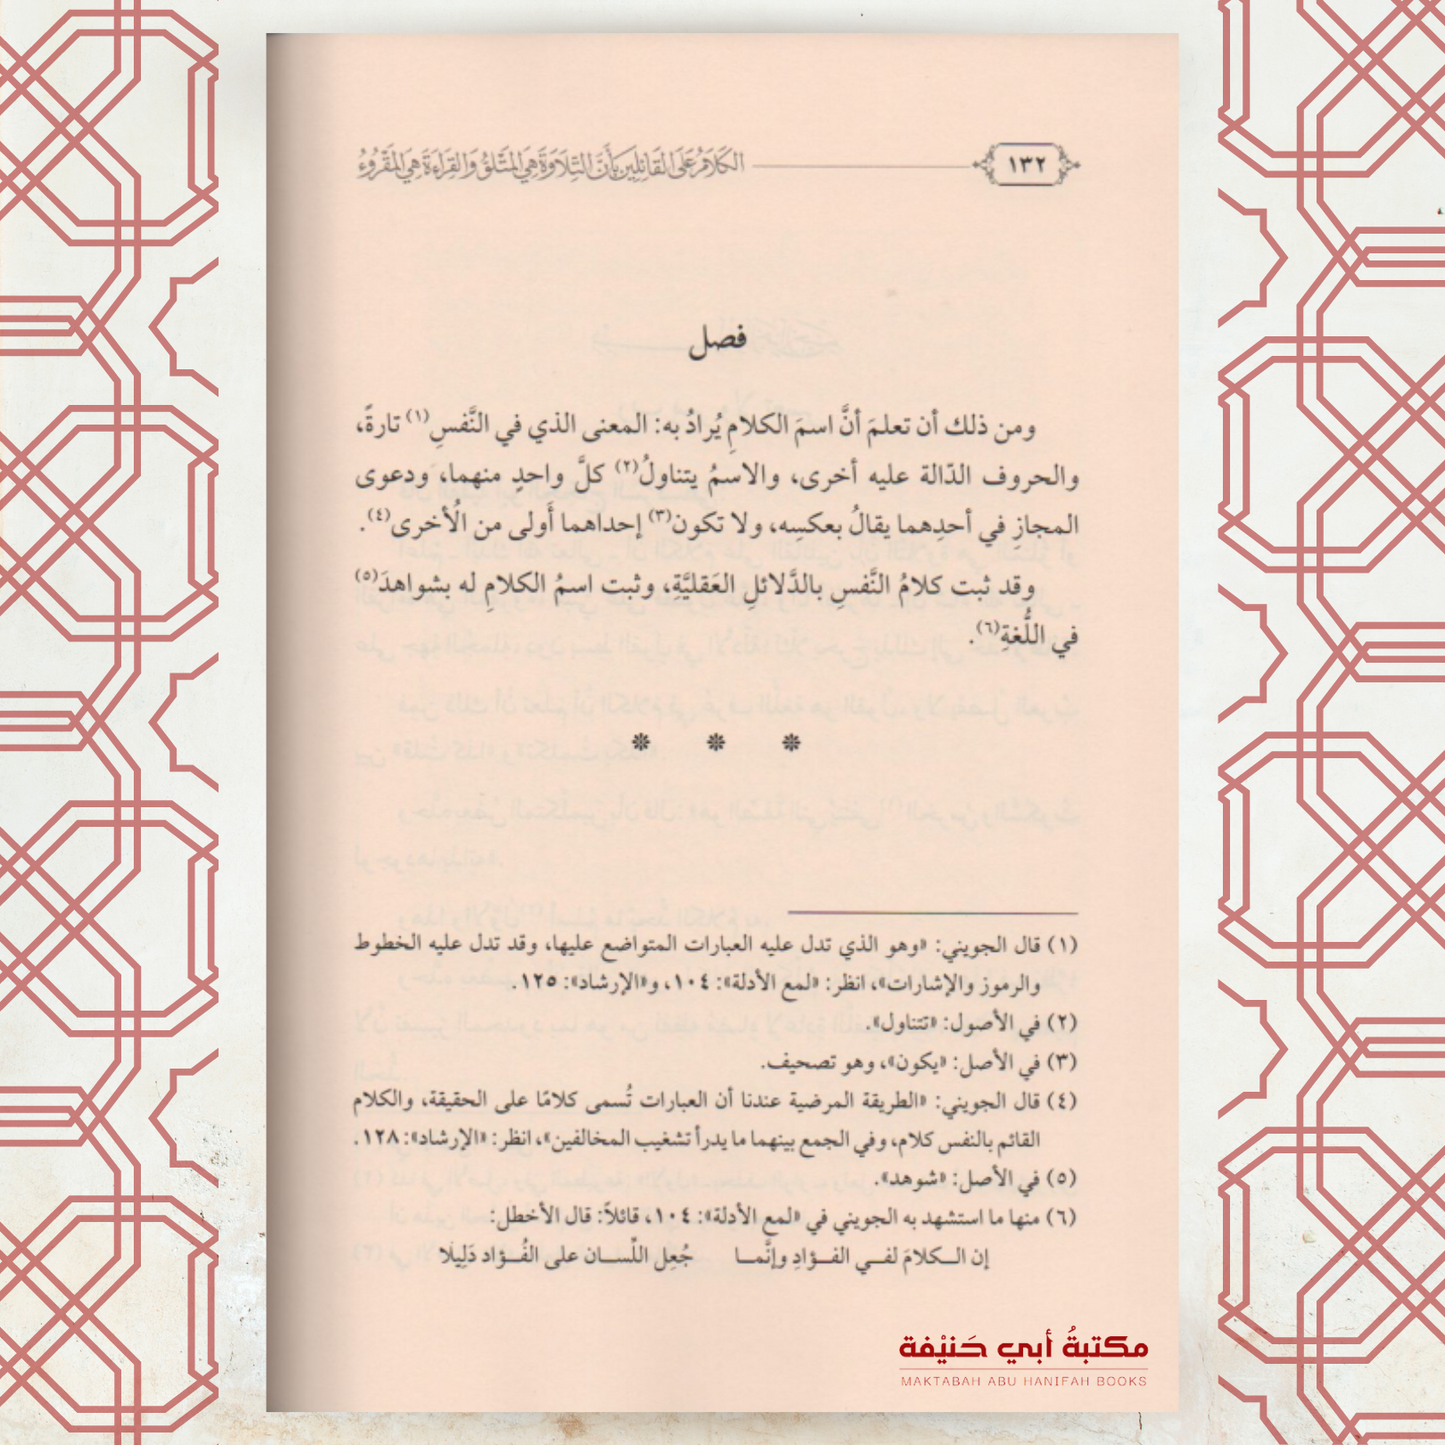 ١٣٢
الكَلَامُ عَلَى القَائِلِينَ بِأَنَّ التِّلَاوَةَ هِيَ المَتْلُوُّ وَالقِرَاءَةَ هِيَ المَقْرُوءُ
فصل
ومن ذلك أن تعلمَ أنَّ اسمَ الكلامِ يُرادُ به: المعنى الذي في النَّفسِ(١) تارةً،
والحروف الدّالة عليه أخرى، والاسمُ يتناولُ(٢) كلَّ واحدٍ منهما، ودعوى
المجازِ في أحدِهما يقالُ بعكسِه، ولا تكون(٣) إحداهما أَولى من الُأخرى(٤).
وقد ثبت كلامُ النَّفسِ بالدَّلائلِ العَقليَّةِ، وثبت اسمُ الكلامِ له بشواهدَ(٥)
في اللُّغةِ(٦).
* * *
(١) قال الجويني: «وهو الذي تدل عليه العبارات المتواضع عليها، وقد تدل عليه الخطوط
والرموز والإشارات»، انظر: «لمع الأدلة»: ١٠٤، و«الإرشاد»: ١٢٥.
(٢) في الأصول: «تتناول».
(٣) في الأصل: «يكون»، وهو تصحيف.
(٤) قال الجويني: «الطريقة المرضية عندنا أن العبارات تُسمى كلامًا على الحقيقة، والكلام
القائم بالنفس كلام، وفي الجمع بينهما ما يدرأ تشغيب المخالفين»، انظر: «الإرشاد»: ١٢٨.
(٥) في الأصل: «شوهد».
(٦) منها ما استشهد به الجويني في «لمع الأدلة»: ١٠٤، قائلاً: قال الأخطل:
إن الــكلامَ لفــي الفــؤادِ وإنَّمــا جُعِل اللِّســان على الفُــؤاد دَلِيلَا
مكتبةُ أبي حَنيْفة
MAKTABAH ABU HANIFAH BOOKS